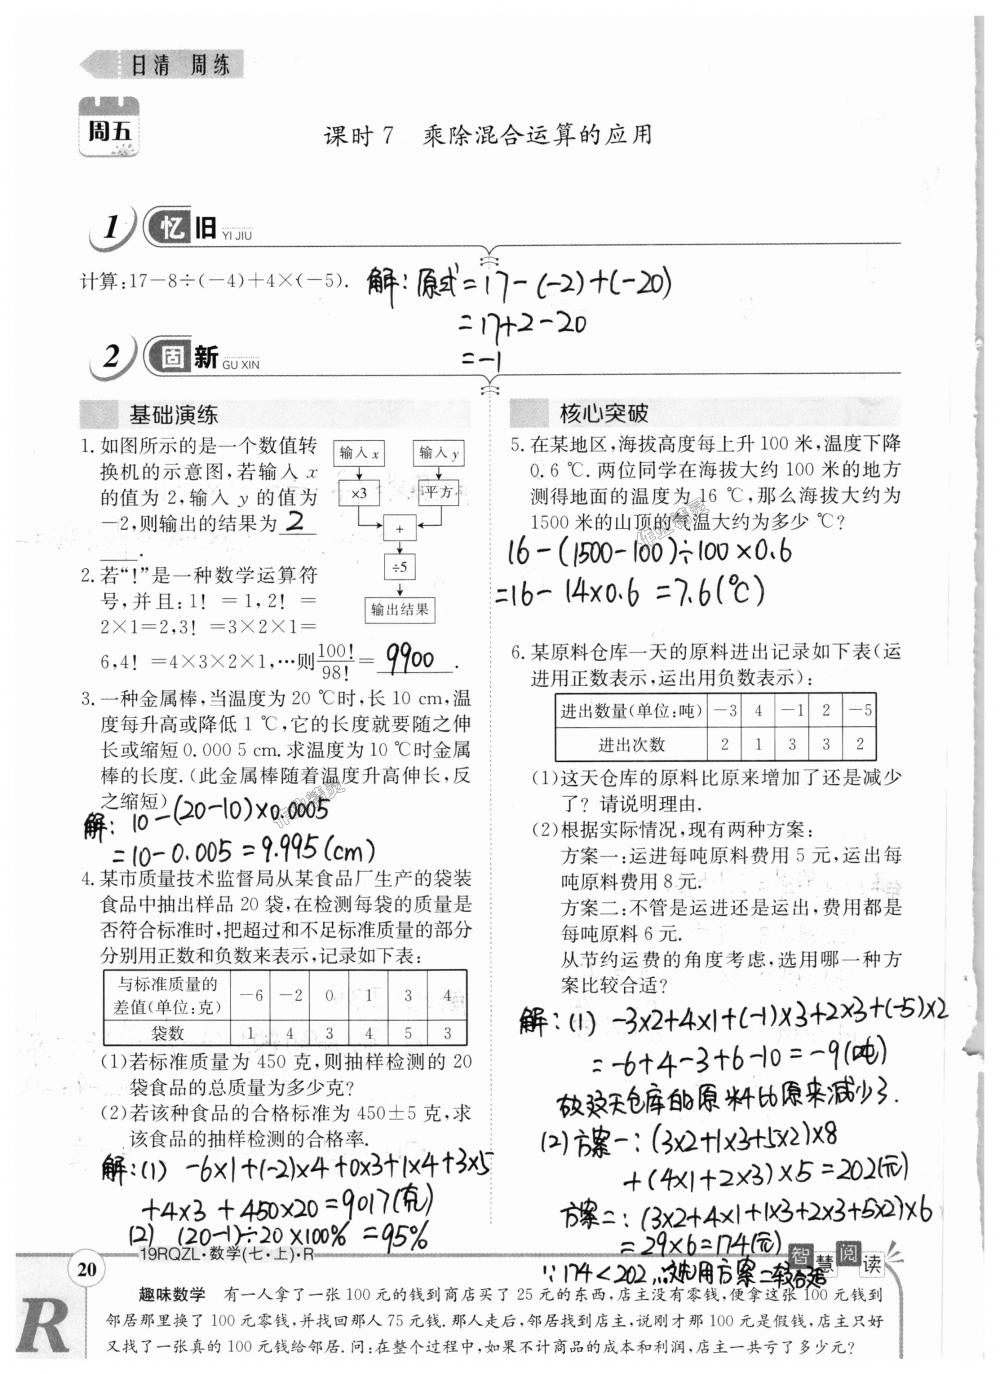 日清 周练
周五
课时7 乘除混合运算的应用
1 忆旧 YI JIU
计算:17-8÷(-4)+4×(-5).
解:原式=17-(-2)+(-20)
=17+2-20
=-1
2 固新 GU XIN
基础演练
1.如图所示的是一个数值转
换机的示意图,若输入 x
的值为 2,输入 y 的值为
-2,则输出的结果为 2
.
输入x 输入y
×3 平方
+
÷5
输出结果
2.若“!”是一种数学运算符
号,并且:1!=1,2!=
2×1=2,3!=3×2×1=
6,4!=4×3×2×1,…则100!/98!= 9900 .
3.一种金属棒,当温度为 20 ℃时,长 10 cm,温
度每升高或降低 1 ℃,它的长度就要随之伸
长或缩短0.000 5 cm.求温度为 10 ℃时金属
棒的长度.(此金属棒随着温度升高伸长,反
之缩短)
解: 10-(20-10)×0.0005
=10-0.005=9.995(cm)
4.某市质量技术监督局从某食品厂生产的袋装
食品中抽出样品 20 袋,在检测每袋的质量是
否符合标准时,把超过和不足标准质量的部分
分别用正数和负数来表示,记录如下表:
与标准质量的
差值(单位:克) -6 -2 0 1 3 4
袋数 1 4 3 4 5 3
(1)若标准质量为 450 克,则抽样检测的 20
袋食品的总质量为多少克?
(2)若该种食品的合格标准为 450±5 克,求
该食品的抽样检测的合格率.
解:(1) -6×1+(-2)×4+0×3+1×4+3×5
+4×3+450×20=9017(克)
(2) (20-1)÷20×100%=95%
核心突破
5.在某地区,海拔高度每上升100 米,温度下降
0.6 ℃.两位同学在海拔大约 100 米的地方
测得地面的温度为 16 ℃,那么海拔大约为
1500 米的山顶的气温大约为多少 ℃?
16-(1500-100)÷100×0.6
=16-14×0.6=7.6(℃)
6.某原料仓库一天的原料进出记录如下表(运
进用正数表示,运出用负数表示):
进出数量(单位:吨) -3 4 -1 2 -5
进出次数 2 1 3 3 2
(1)这天仓库的原料比原来增加了还是减少
了?请说明理由.
(2)根据实际情况,现有两种方案:
方案一:运进每吨原料费用 5 元,运出每
吨原料费用8元.
方案二:不管是运进还是运出,费用都是
每吨原料 6 元.
从节约运费的角度考虑,选用哪一种方
案比较合适?
解:(1) -3×2+4×1+(-1)×3+2×3+(-5)×2
=-6+4-3+6-10=-9(吨)
故这天仓库的原料比原来减少了.
(2)方案一:(3×2+1×3+5×2)×8
+(4×1+2×3)×5=202(元)
方案二:(3×2+4×1+1×3+2×3+5×2)×6
=29×6=174(元)
∵174<202∴选用方案二较合适
19RQZL·数学(七·上)·R
20
智慧阅读
趣味数学 有一人拿了一张 100 元的钱到商店买了 25 元的东西,店主没有零钱,便拿这张 100 元钱到
邻居那里换了 100 元零钱,并找回那人 75 元钱.那人走后,邻居找到店主,说刚才那 100 元是假钱,店主只好
又找了一张真的 100 元钱给邻居.问:在整个过程中,如果不计商品的成本和利润,店主一共亏了多少元?
R